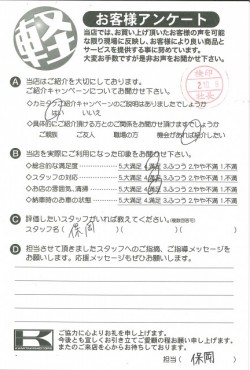 軽
お客様アンケート
当店では、お買い上げ頂いたお客様の声を可能
な限り現場に反映し、お客様により良い商品と
サービスを提供する事に努めています。
大変お手数ですが是非お声をお聞かせ下さい。
A 当店はご紹介を大切にしております。
ご紹介キャンペーンについてお聞かせ下さい。
◇カミタウンご紹介キャンペーンのご説明はありましたでしょうか
はい いいえ
◇具体的にご紹介頂ける方とのご関係をお聞かせ頂けますでしょうか
ご親族 ご友人 職場の方 機会があれば紹介したい
B 当店を実際にご利用になった印象をお聞かせ下さい。
◇総合的な満足度 5.大満足 4.満足 3.ふつう 2.やや不満 1.不満
◇スタッフの対応 5.大満足 4.満足 3.ふつう 2.やや不満 1.不満
◇お店の雰囲気、清掃 5.大満足 4.満足 3.ふつう 2.やや不満 1.不満
◇納車時のお車の状態 5.大満足 4.満足 3.ふつう 2.やや不満 1.不満
C 評価したいスタッフがいれば教えてください。(複数回答可)
スタッフ名( 保岡 )( )( )
D 担当させて頂きましたスタッフへのご指摘、ご指導メッセージを
お願いします。応援メッセージもぜひお願いします。
K
ご協力に心よりお礼を申し上げます。
今後とも宜しくお引き立てご愛顧の程お願い申し上げます。
またのご来店を心からお待ちしております。
担当( 保岡 )